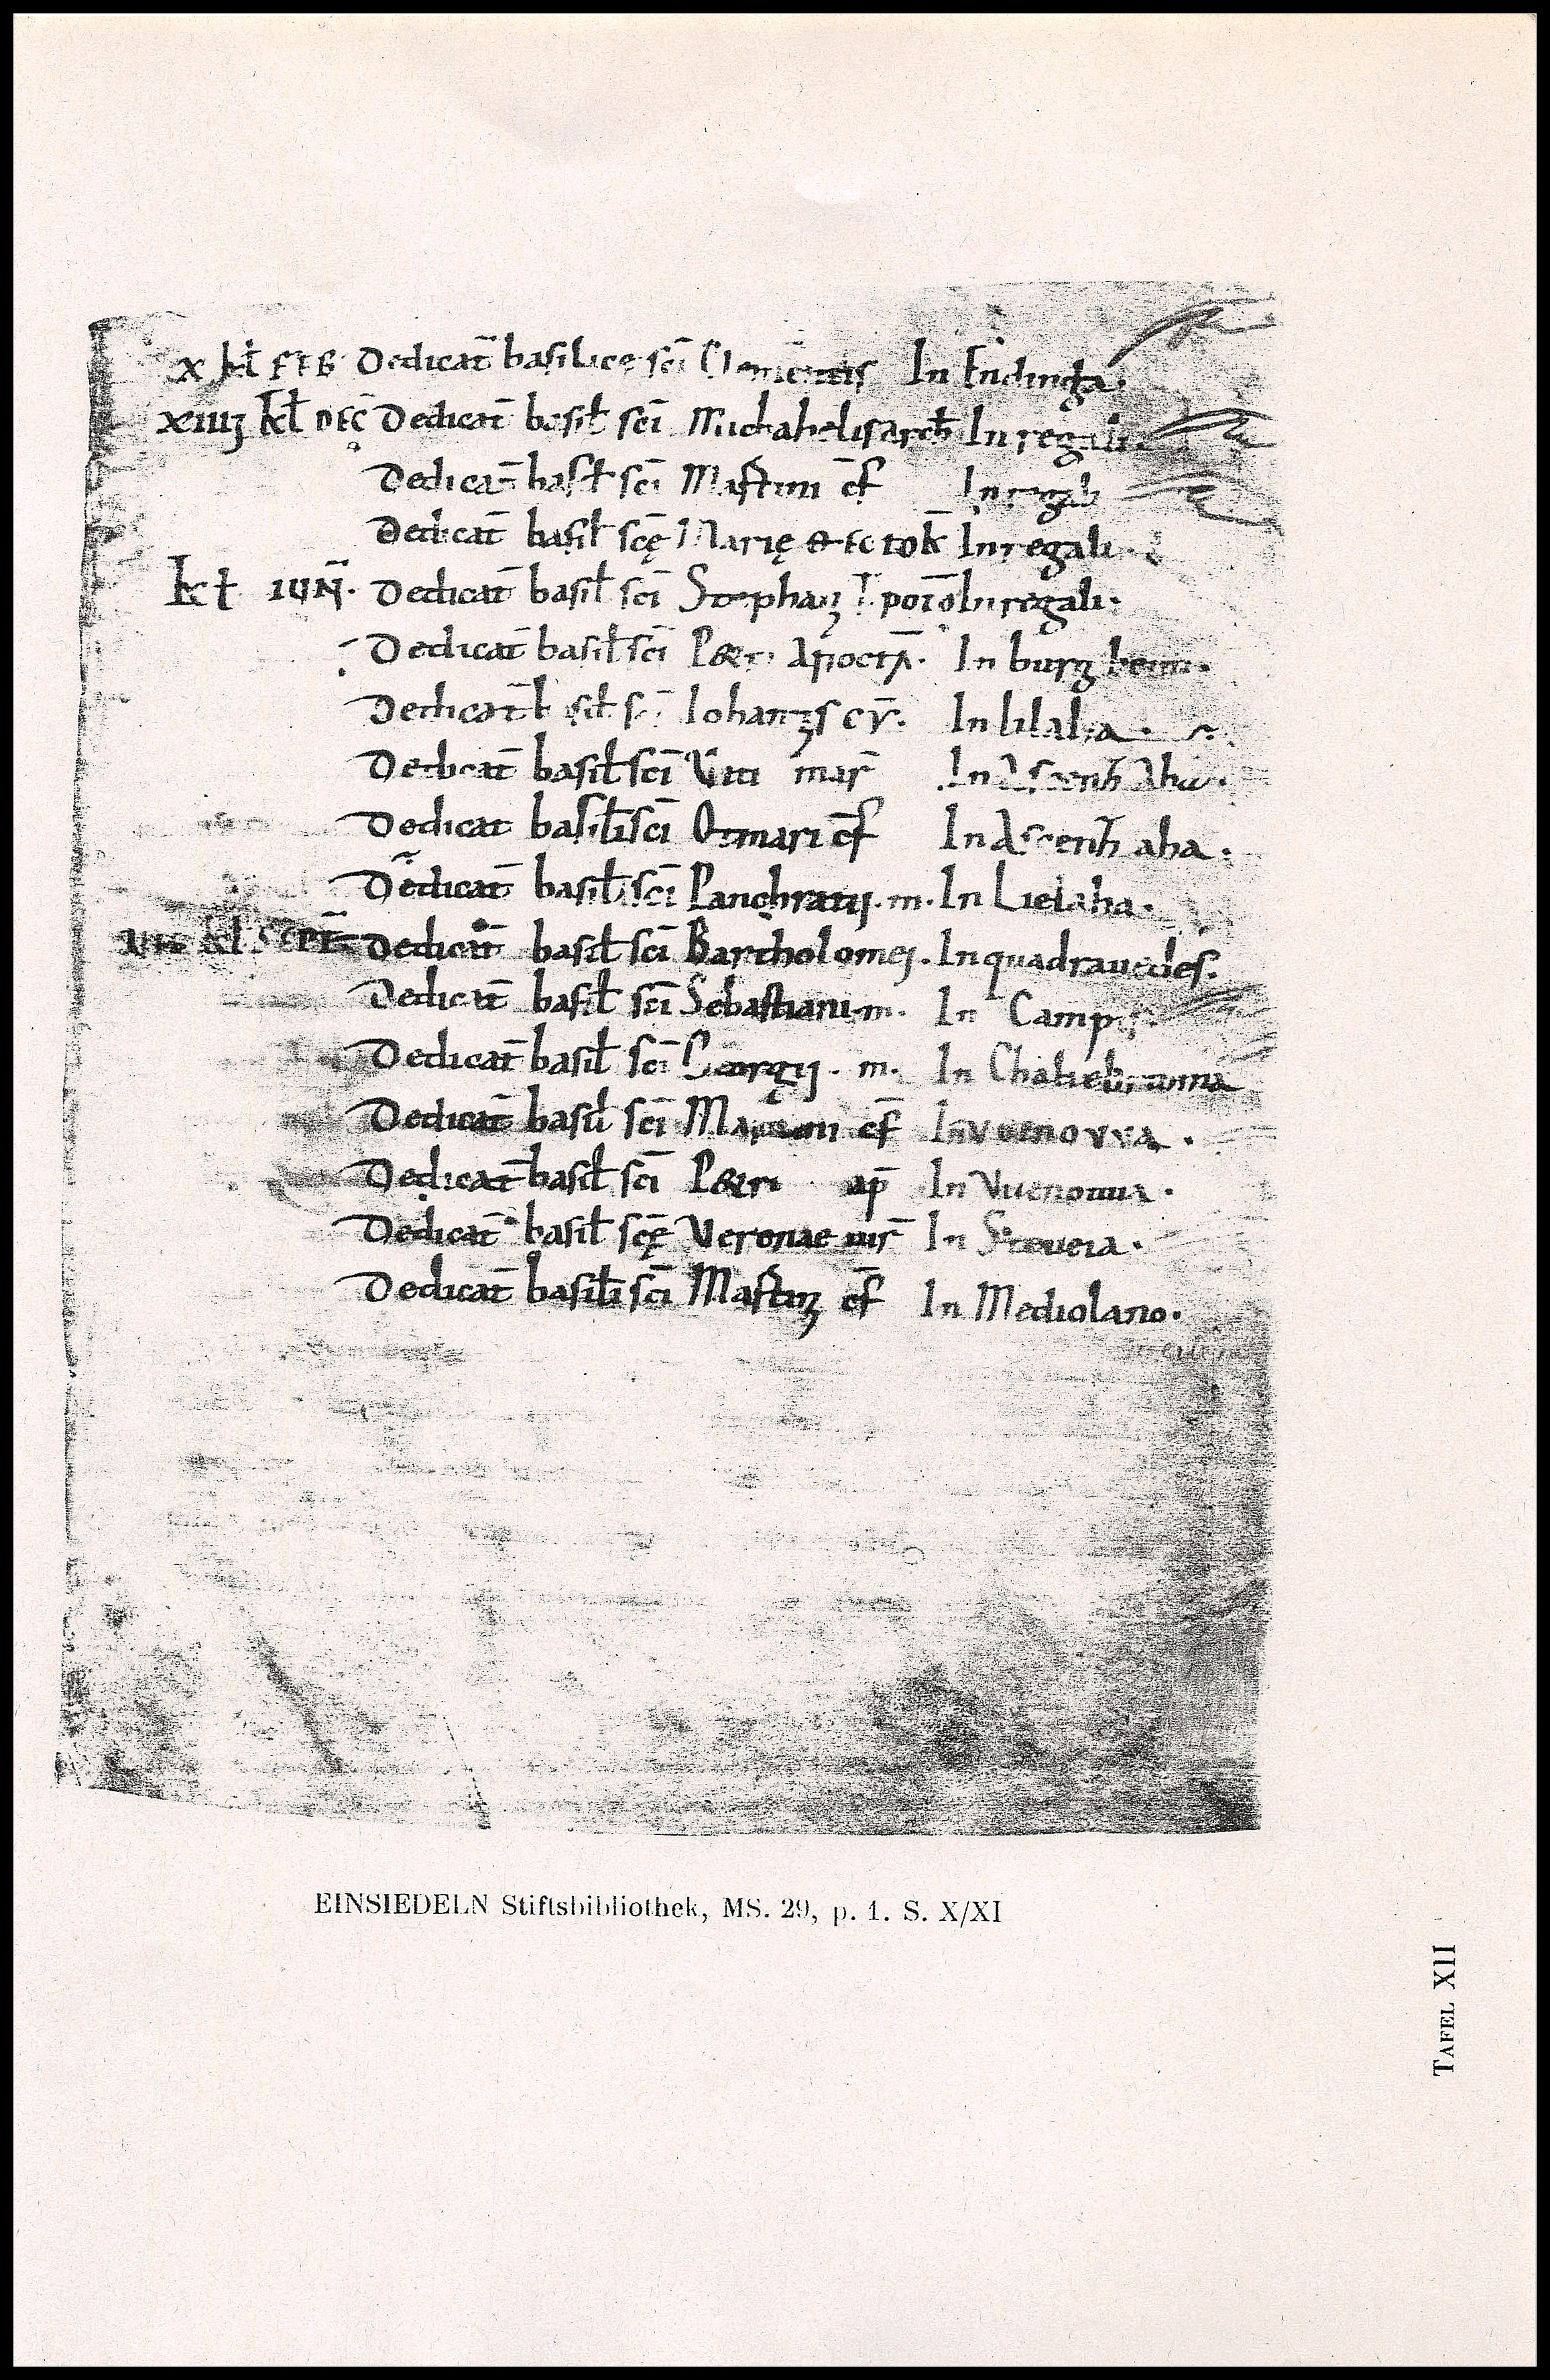 x kl̄ FEB Dedicat̄ basilice sc̄i Clementis In Endinga.
xiiij kl̄ DEC̄ Dedicat̄ basil̄ sc̄i Michahelis arch̄ In regali
Dedicat̄ basil̄ sc̄i Martini cf̄ In regali
Dedicat̄ basil̄ sc̄ę Marię In regali.
kl̄ IUN̄. Dedicat̄ basil̄ sc̄i Stephani In regali.
Dedicat̄ basil̄ sc̄i Petri In burg heim.
Dedicat̄ basil̄ sc̄i Iohannis In lilaha.
Dedicat̄ basil̄ sc̄i Viti mar̄ In Ascenh̄ Aha.
Dedicat̄ basil̄ sc̄i Otmari cf̄ In Ascenh̄ aha.
Dedicat̄ basil̄ sc̄i Panchratij. m. In Lielaha.
kl̄ SEPT̄ Dedicat̄ basil̄ sc̄i Bartholomej. In quadrauedes.
Dedicat̄ basil̄ sc̄i Sebastiani m. In Campis.
Dedicat̄ basil̄ sc̄i Georgij. m. In
Dedicat̄ basil̄ sc̄i Martini cf̄ In
Dedicat̄ basil̄ sc̄i Petri ap̄ In Vuenouua.
Dedicat̄ basil̄ sc̄ę Veronae In Steueia.
Dedicat̄ basil̄ sc̄i Martini cf̄ In Mediolano.
EINSIEDELN Stiftsbibliothek, MS. 29, p. 1. S. X/XI
TAFEL XII